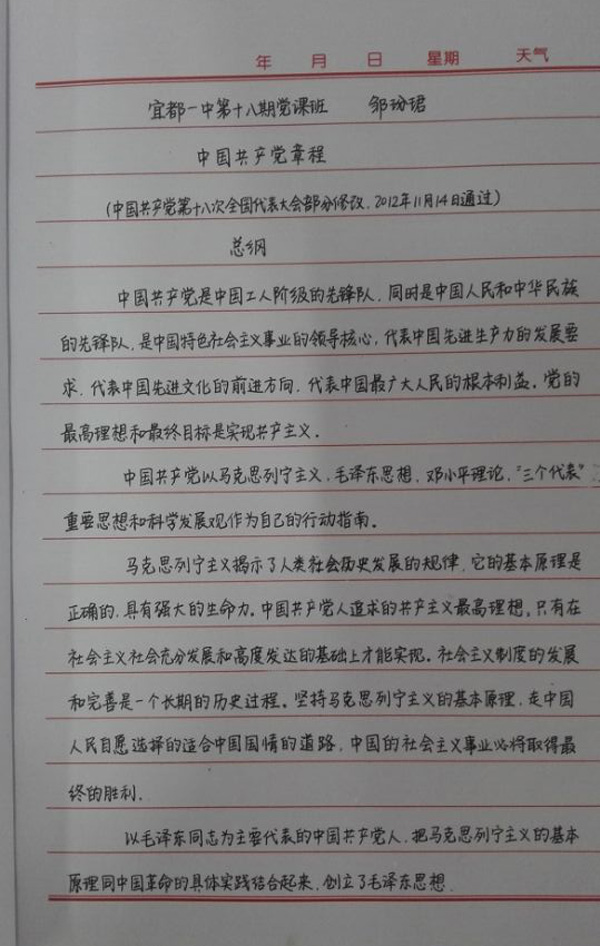 年 月 日 星期 天气
宜都一中第十八期党课班 邹玢珺
中国共产党章程
(中国共产党第十八次全国代表大会部分修改,2012年11月14日通过)
总纲
中国共产党是中国工人阶级的先锋队,同时是中国人民和中华民族
的先锋队,是中国特色社会主义事业的领导核心,代表中国先进生产力的发展要
求,代表中国先进文化的前进方向,代表中国最广大人民的根本利益。党的
最高理想和最终目标是实现共产主义。
中国共产党以马克思列宁主义,毛泽东思想,邓小平理论,“三个代表”
重要思想和科学发展观作为自己的行动指南。
马克思列宁主义揭示了人类社会历史发展的规律,它的基本原理是
正确的,具有强大的生命力。中国共产党人追求的共产主义最高理想,只有在
社会主义社会充分发展和高度发达的基础上才能实现。社会主义制度的发展
和完善是一个长期的历史过程。坚持马克思列宁主义的基本原理,走中国
人民自愿选择的适合中国国情的道路,中国的社会主义事业必将取得最
终的胜利.
以毛泽东同志为主要代表的中国共产党人,把马克思列宁主义的基本
原理同中国革命的具体实践结合起来,创立了毛泽东思想.